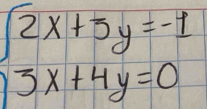 2x+3y=-1
3x+4y=0